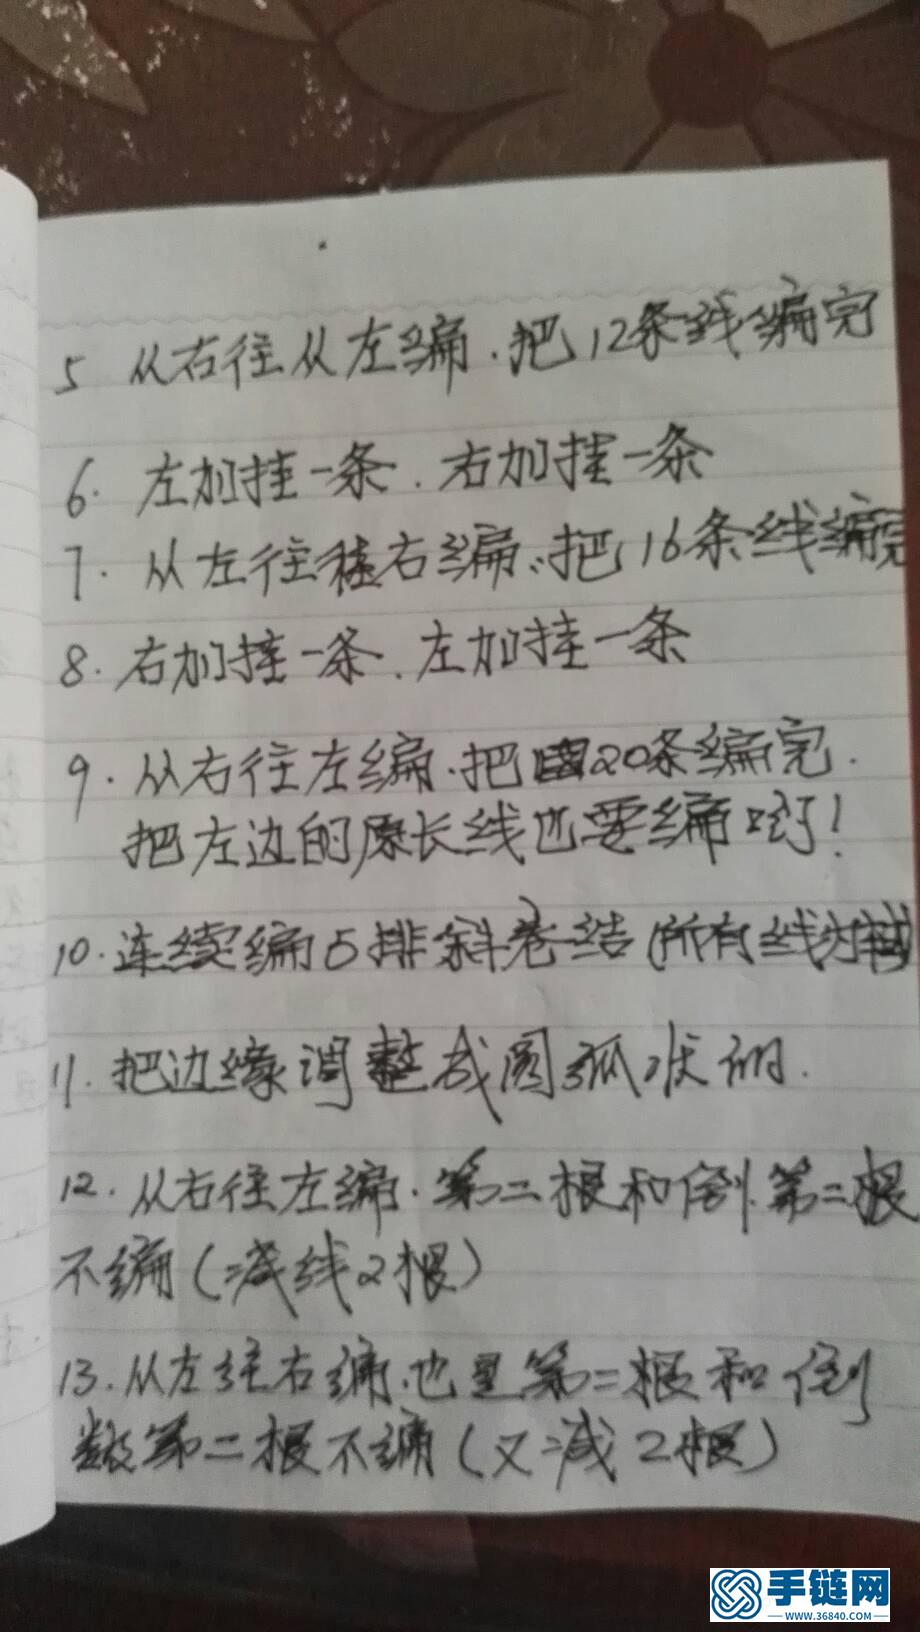 5 从右往从左编.把12条线编完
6. 左加挂一条.右加挂一条
7. 从左往右编.把16条线编完
8. 右加挂一条.左加挂一条
9. 从右往左编.把20条编完.
把左边的原长线也要编哟!
10. 连续编5排斜卷结(所有线为轴
11. 把边缘调整成圆弧状的.
12. 从右往左编.第二根和倒第二根
不编(减线2根)
13. 从左往右编.也是第二根和倒
数第二根不编(又减2根)
手链网
WWW.36840.COM